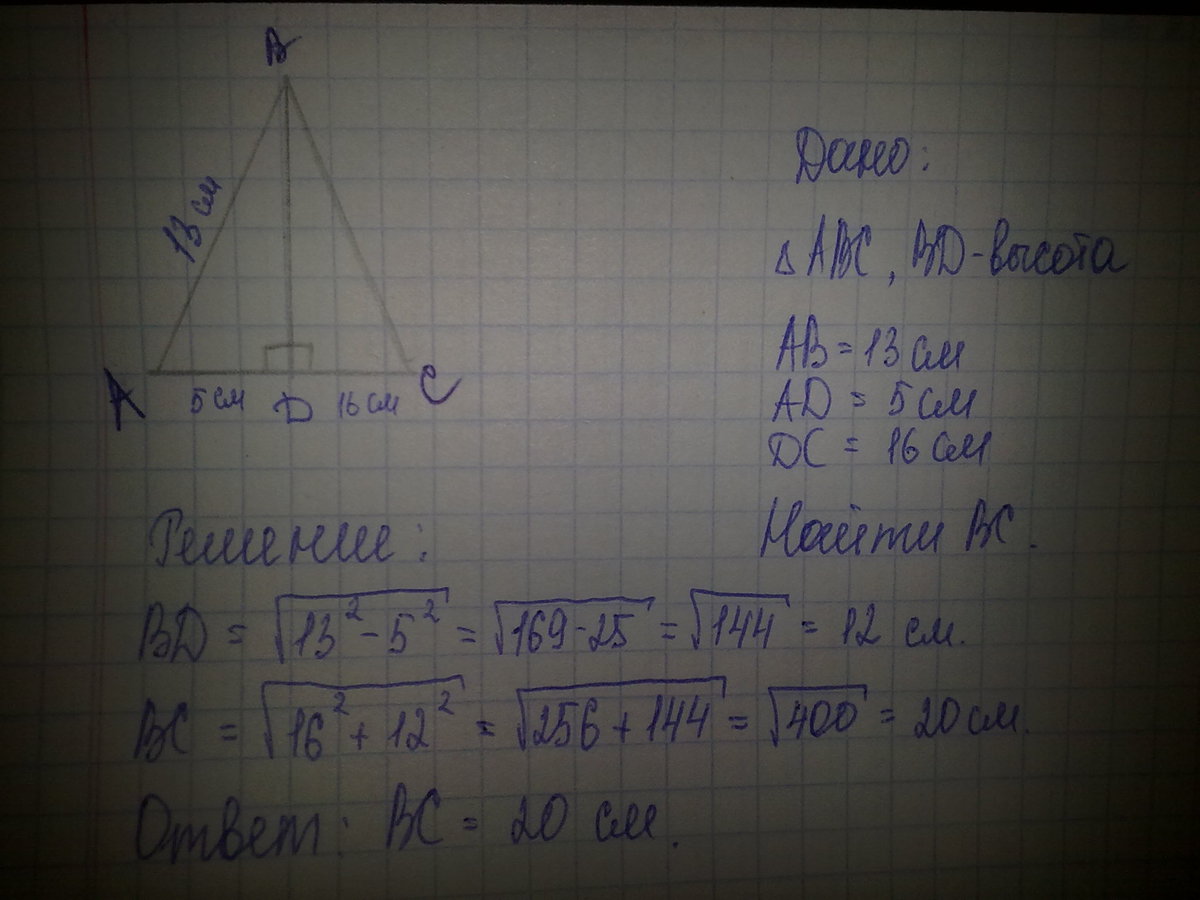 B
13 см
A
5 см D 16 см C
Дано:
△ ABC, BD - высота
AB = 13 см
AD = 5 см
DC = 16 см
Найти BC.
Решение:
BD = √13² - 5² = √169 - 25 = √144 = 12 см.
BC = √16² + 12² = √256 + 144 = √400 = 20 см.
Ответ: BC = 20 см.